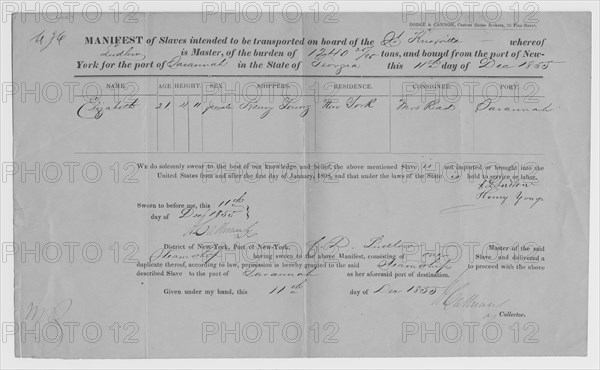 DODGE & CANNON, Custom House Brokers, 51 Pine Street.
MANIFEST of Slaves intended to be transported on board of the St Knoxville whereof
Ludlow is Master, of the burden of 1240 tons, and bound from the port of New-
York for the port of Savannah in the State of Georgia this 11th day of Dec 1855
NAME. AGE HEIGHT. SEX. SHIPPERS. RESIDENCE. CONSIGNEE. PORT.
Elizabeth 21 4 11 female Henry Young New York Mrs Read Savannah
We do solemnly swear to the best of our knowledge and belief, the above mentioned Slave is not imported or brought into the
United States from and after the first day of January, 1808, and that under the laws of the State is held to service or labor.
Ludlow
Henry Young
Sworn to before me, this 11th
day of Dec 1855
District of New-York, Port of New-York. Ludlow Master of the said
Steamship having sworn to the above Manifest, consisting of one Slave and delivered a
duplicate thereof, according to law, permission is hereby granted to the said Steamship to proceed with the above
described Slave to the port of Savannah as her aforesaid port of destination.
Given under my hand, this 11th day of Dec 1855
Collector.
PHOTO 12